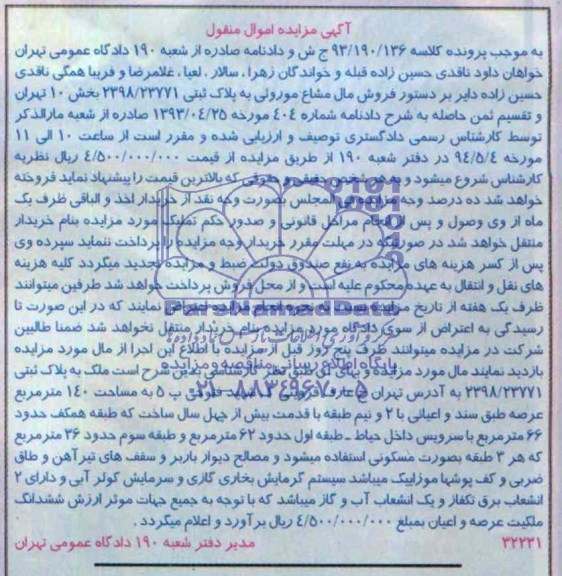 آگهی مزایده اموال منقول
به موجب پرونده کلاسه ۹۳/۱۹۰/۱۳۶ ج ش و دادنامه صادره از شعبه ۱۹۰ دادگاه عمومی تهران
خواهان داود ناقدی حسین زاده قبله و خواندگان زهرا، سالار، لعیا، غلامرضا و فریبا همگی ناقدی
حسین زاده دایر بر دستور فروش مال مشاع موروثی به پلاک ثبتی ۲۳۹۸/۲۳۷۷۱ بخش ۱۰ تهران
و تقسیم ثمن حاصله به شرح دادنامه شماره ٤۰٤ مورخه ۱۳۹۳/۰٤/۲۵ صادره از شعبه مارالذکر
توسط کارشناس رسمی دادگستری توصیف و ارزیابی شده و مقرر است از ساعت ۱۰ الی ۱۱
مورخه ۹٤/۵/٤ در دفتر شعبه ۱۹۰ از طریق مزایده از قیمت ٤/۵۰۰/۰۰۰/۰۰۰ ریال نظریه
کارشناس شروع میشود و به هر شخص حقیقی و حقوقی که بالاترین قیمت را پیشنهاد نماید فروخته
خواهد شد ده درصد وجه مزایده فی المجلس بصورت وجه نقد از خریدار اخذ و الباقی ظرف یک
ماه از وی وصول و پس از انجام مراحل قانونی و صدور حکم تملیک مورد مزایده بنام خریدار
منتقل خواهد شد در صورتیکه در مهلت مقرر خریدار وجه مزایده را پرداخت ننماید سپرده وی
پس از کسر هزینه های مزایده به نفع صندوق دولت ضبط و مزایده تجدید میگردد کلیه هزینه
های نقل و انتقال به عهده محکوم علیه است و از محل فروش پرداخت خواهد شد طرفین میتوانند
ظرف یک هفته از تاریخ مزایده نسبت به نحوه انجام مزایده اعتراض نمایند که در این صورت تا
رسیدگی به اعتراض از سوی دادگاه مورد مزایده بنام خریدار منتقل نخواهد شد ضمنا طالبین
شرکت در مزایده میتوانند ظرف پنج روز قبل از مزایده با اطلاع این اجرا از مال مورد مزایده
بازدید نمایند مال مورد مزایده و بهای آن طبق نظر کارشناسی بدین شرح است ملک به پلاک ثبتی
۲۳۹۸/۲۳۷۷۱ به آدرس تهران خ عارف قزوینی خ شهید پ ۵ به مساحت ۱٤۰ مترمربع
عرصه طبق سند و اعیانی با ۲ و نیم طبقه با قدمت بیش از چهل سال ساخت که طبقه همکف حدود
۶۶ مترمربع با سرویس داخل حیاط ـ طبقه اول حدود ۶۲ مترمربع و طبقه سوم حدود ۳۶ مترمربع
که هر ۳ طبقه بصورت مسکونی استفاده میشود و مصالح دیوار باربر و سقف های تیرآهن و طاق
ضربی و کف پوشها موزاییک میباشد سیستم گرمایش بخاری گازی و سرمایش کولر آبی و دارای ۲
انشعاب برق تکفاز و یک انشعاب آب و گاز میباشد که با توجه به جمیع جهات موثر ارزش ششدانگ
ملکیت عرصه و اعیان بمبلغ ٤/۵۰۰/۰۰۰/۰۰۰ ریال برآورد و اعلام میگردد.
۳۲۲۳۱ مدیر دفتر شعبه ۱۹۰ دادگاه عمومی تهران
ParsNamadData
پایگاه اطلاع رسانی مناقصه و مزایده
۰۲۱-۸۸۳٤۹۶۷۰-۵